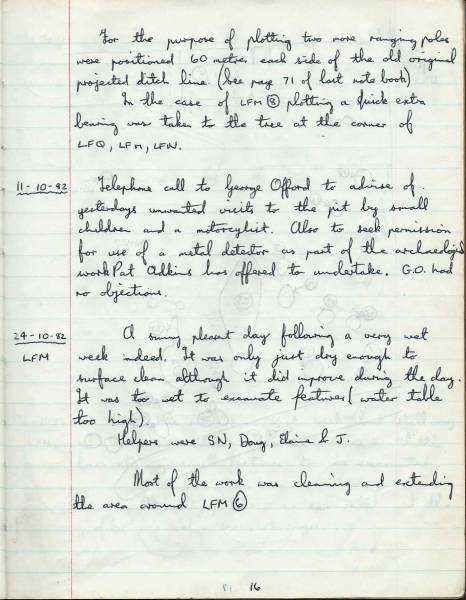 For the purpose of plotting two more ranging poles
were positioned 60 metres each side of the old original
projected ditch line (See page 71 of last note book)
In the case of LFM ⑧ plotting a quick extra
bearing was taken to the tree at the corner of
LFQ, LFM, LFN.
11-10-82 Telephone call to George Offord to advise of
yesterdays unwanted visits to the pit by small
children and a motorcylist. Also to seek permission
for use of a metal detector as part of the archaeologic
work Pat Adkins has offered to undertake. G.O. had
no objections.
24-10-82 A sunny pleasant day following a very wet
LFM week indeed. It was only just dry enough to
surface clean although it did improve during the day.
It was too wet to excavate features (water table
too high).
Helpers were SN, Doug, Elaine & J.
Most of the work was cleaning and extending
the area around LFM ⑥
81 16